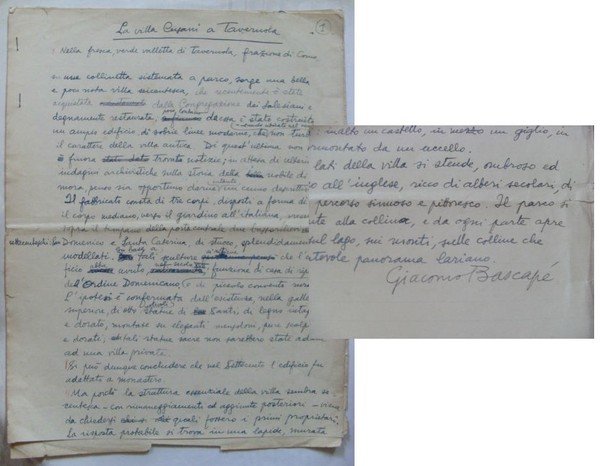 La villa Cusani a Tavernola
1
Nella fresca, verde valletta di Tavernola, frazione di Como
su una collinetta sistemata a parco, sorge una bella
e poco nota villa seicentesca, che recentemente è stata
acquistata dalla Congregazione dei Salesiani e
degnamente restaurata, ed è stato costruito
un ampio edificio di sobrie linee moderne, che non tur
il carattere della villa antica. Di quest'ultima non
è finora notizie, in attesa di ulteriori
indagini archivistiche sulla storia della nobile di
mora, penso sia opportuno darne un cenno descrittivo
Il fabbricato consta di tre corpi, disposti a forma di
il corpo mediano, verso il giardino all'italiana,
il timpano della porta centrale due
Domenico e Santa Caterina, di stucco, splendidamente
modellati. tali sculture che l'e
ficio avuto, funzione di casa di
dell'Ordine Domenicano, o di piccolo convento
L'ipotesi è confermata dall'esistenza, nella galle
superiore, di statue di Santi, di legno
e dorato, montate su eleganti mensoloni, pure scolp
e dorati; tali statue sacre non sarebbero state
ad una villa privata.
Si può dunque concludere che nel Settecento l'edificio fu
adattato a monastero.
Ma poichè la struttura essenziale della villa sembra se
centesca - con rimaneggiamenti ed aggiunte posteriori -
da chiedersi quali fossero i primi proprietari
La risposta probabile si trova in una lapide, murata
in alto un castello, in mezzo un giglio, in
sormontato da un uccello.
lati della villa si stende, ombroso ed
all'inglese, ricco di alberi secolari, di
percorso sinuoso e pittoresco. Il parco si
alla collina, e da ogni parte apre
sul lago, sui monti, sulle colline che
panorama lariano.
Giacomo Bascapé